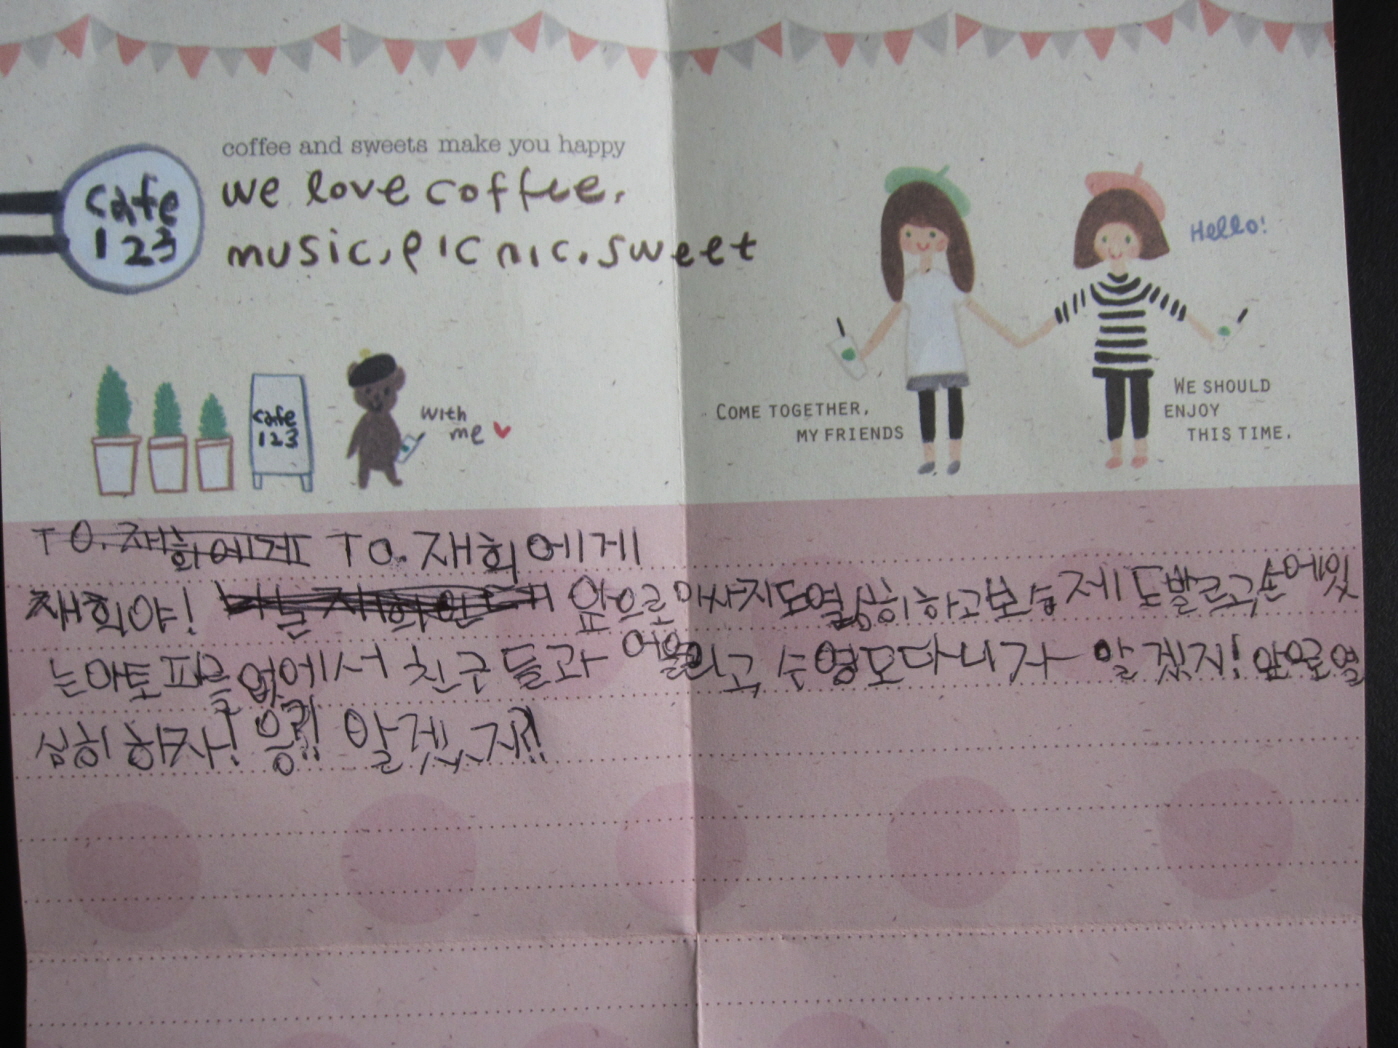 coffee and sweets make you happy
we love coffee,
music, picnic, sweet
cafe
123
Hello!
cafe
123
with
me
COME TOGETHER,
MY FRIENDS
WE SHOULD
ENJOY
THIS TIME.
TO. 재희에게 TO. 재희에게
재희야! 앞으로 마사지도열심히하고보습제도발르고손에잇
는아토피를없에서 친구들과 어울리고 수영도다니자 알겠지! 앞으로열
심히 하자! 응?! 알겠지?!